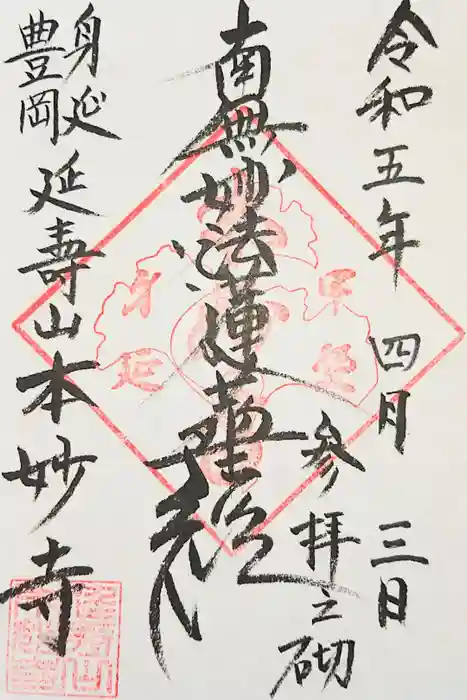 令和五年 四月 三日
参拝之砌
南無妙法蓮華経
身延
豊岡
延寿山本妙寺
身延